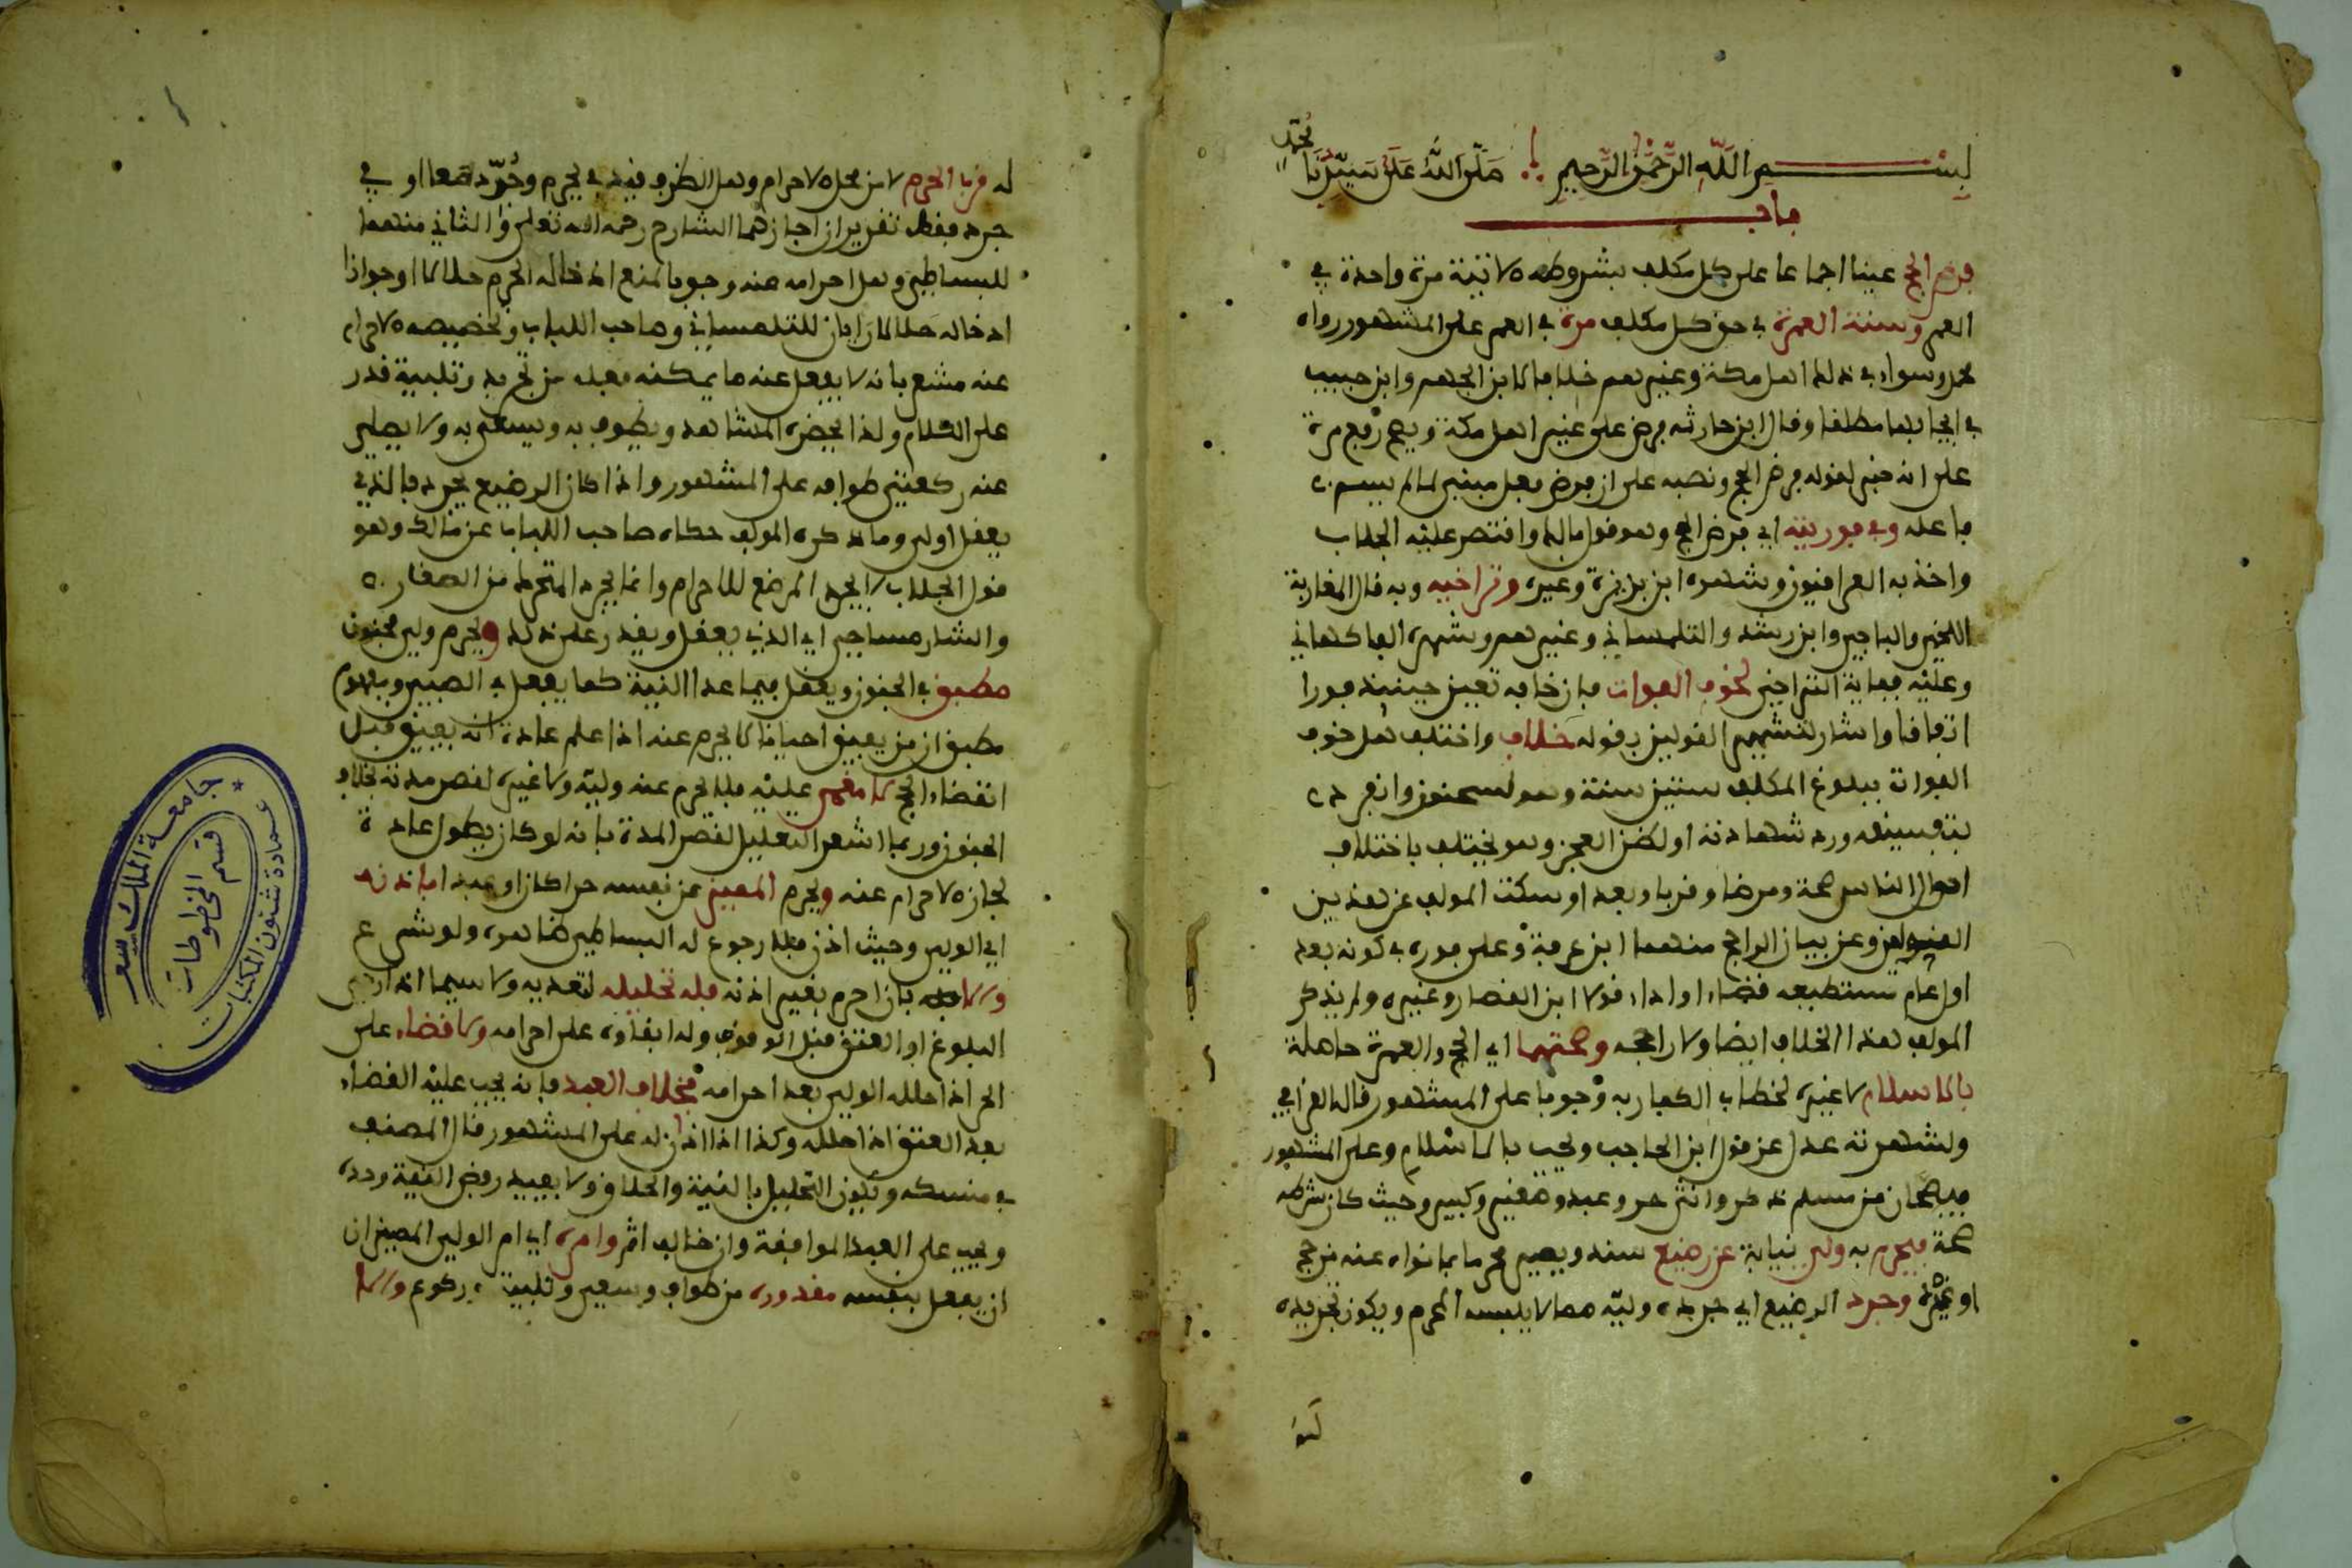 بسم الله الرحمن الرحيم صلى الله على سيدنا محمد
باب
فرض الحج عينا اجماعا على كل مكلف بشروطه الاتية مرة واحدة في
العمر وسنت العمرة في حق كل مكلف مرة في العمر على المشهور رواه
محمد وسواء في ذلك اهل مكة وغيرهم خلافا لابن الجهم وابن حبيب
في ايجابها مطلقا وقال ابن حارثه فرض على غير اهل مكة ويصح رفع مرة
على انه خبر لقوله فرض الحج ونصبه على ان فرض فعل مبني لما لم يسم
فاعله وفي فوريته اي فرض الحج وهو قول مالك واقتصر عليه الجلاب
واخذ به العراقيون وشهره ابن بزيزة وغيره وتراخيه وبه قال المغاربة
اللخمي والباجي وابن رشد والتلمساني وغيرهم وشهره الفاكهاني
وعليه فغاية التراخي لخوف الفوات فان خافه تعين حينئذ فورا
اتفاقا واشار لتشهير القولين بقوله خلاف واختلف هل خوف
الفوات ببلوغ المكلف ستين سنة وهو لسحنون وانفرد
بتفسيقه ورد شهادته او لظن العجز وهو يختلف باختلاف
احوال الناس صحة ومرضا وقربا وبعدا وسكت المولف عن هذين
القولين وعن بيان الراجح منهما ابن عرفة وعلى فوره في كونه بعد
اول عام مستطيعه قضاء او اداء قولا ابن القصار وغيره ولم يذكر
المولف هذا الخلاف ايضا ولا راجحه وصحتهما اي الحج والعمرة حاصلة
بالاسلام لا غيره لخطاب الكفار به وجوبا على المشهور قاله القرافي
ولشهرته عدل عن قول ابن الحاجب ويجب بالاسلام وعلى المشهور
فيصحان من مسلم ذكر وانثى حر وعبد وصغير وكبير وحيث كان شرطه
صحة فيحرم به ولي نيابة عن رضيع سند ويصير محرما بما نواه عنه من حج
او عمرة وجرد الرضيع اي جرده وليه مما لا يلبسه المحرم ويكون تجريده
له قرب الحرم لا من محل الاحرام وهل الظرف قيد في يحرم وجرد معا او في
جرد فقط تقريران اجازهما الشارح رحمه الله تعالى والثاني منهما
للبساطي وهل احرامه عنه وجوبا لمنع ادخاله الحرم حلالا او جوازا
ادخاله حلالا رايان للتلمساني وصاحب اللباب وتخصيصه الاحرام
عنه مشعر بانه لا يفعل عنه ما يمكنه فعله من تجريد وتلبية قدر
على الكلام ولذا يحضره المشاهد ويطوف به ويسعى به ولا يصلي
عنه ركعتي طوافه على المشهور واذا كان الرضيع يجرد فالذي
يعقل اولى وما ذكره المولف حكاه صاحب اللباب عن مالك وهو
قول الجلاب لا يجرد الرضيع للاحرام وانما يجرد المتحرك من الصغار
والشارمساحي اي الذي يعقل ويقدر على ذلك ويحرم ولي مجنون
مطبق في الجنون ويفعل فيما عدا النية كما يفعل في الصبي ومفهوم
مطبق ان من يفيق احيانا لا يحرم عنه اذا علم عادة انه يفيق قبل
انقضاء الحج لا مغمى عليه فلا يحرم عنه وليه ولا غيره لقصر مدته بخلاف
الجنون وربما اشعر التعليل لقصر المدة بانه لو كان يطول عادة
لجاز الاحرام عنه ويحرم المميز عن نفسه حرا كان او عبدا باذنه
اي الولي وحيث اذن فلا رجوع له البساطي ظاهره ولو شرع
والا بان احرم بغير اذنه فله تحليله لتعديه ولا سيما اذا
البلوغ او العتق قبل الوقوف وله ابقاؤه على احرامه ولا قضاء على
الحر اذا حلله الولي بعد احرامه بخلاف العبد فانه يجب عليه القضاء
بعد العتق اذا حلله وكذا اذا اذن له على المشهور قال المصنف
في منسكه ويكون التحليل بالنية والحلاق ولا يفيد رفض النية وحده
ويجب على العبد الموافقة وان خالف اثم وامره اي امر الولي المميز ان
ان يفعل بنفسه مقدوره من طواف وسعي وتلبية وركوع والا
جامعة الملك سعود
عمادة شئون المكتبات
قسم المخطوطات